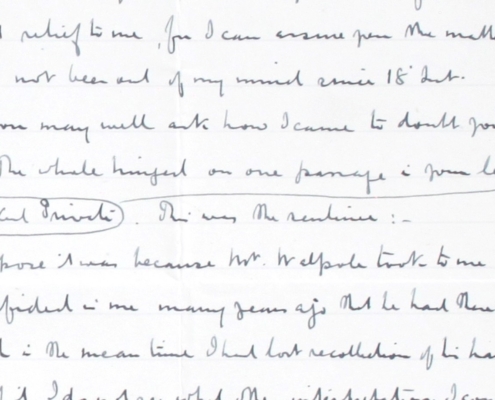 relief to me, for I can assure you the matt
not been out of my mind since 18
you may well ask how I came to doubt you
The whole hinged on one passage i your le
Private). This was the sentence :-
pose it was because Mr. Walpole took to me
fided in me many years ago that he had these
i the mean time I had lost recollection of his ha
it I do not see what other interpretation I cou